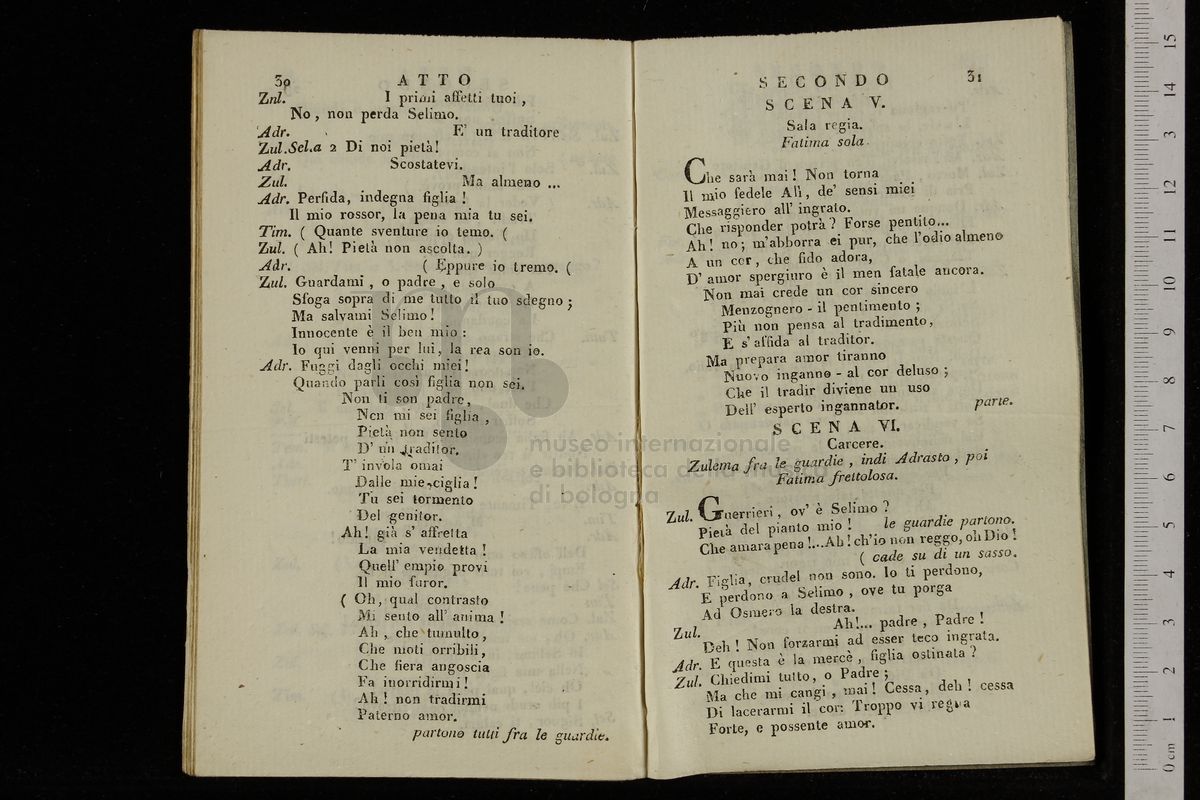 30 ATTO
Znl. I primi affetti tuoi ,
No , non perda Selimo.
Adr. E' un traditore
Zul.Sel.a 2 Di noi pietà!
Adr. Scostatevi.
Zul. Ma almeno ...
Adr. Perfida, indegna figlia !
Il mio rossor, la pena mia tu sei.
Tim. ( Quante sventure io temo. (
Zul. ( Ah! Pietà non ascolta. )
Adr. ( Eppure io tremo. (
Zul. Guardami , o padre , e solo
Sfoga sopra di me tutto il tuo sdegno ;
Ma salvami Selimo!
Innocente è il ben mio :
Io qui venni per lui, la rea son io.
Adr. Fuggi dagli occhi miei!
Quando parli così figlia non sei.
Non ti son padre,
Non mi sei figlia ,
Pietà non sento
D' un traditor.
T' invola omai
Dalle mie ciglia !
Tu sei tormento
Del genitor.
Ah! già s' affretta
La mia vendetta !
Quell' empio provi
Il mio furor.
( Oh, qual contrasto
Mi sento all' anima !
Ah , che tumulto,
Che moti orribili,
Che fiera angoscia
Fa inorridirmi!
Ah ! non tradirmi
Paterno amor.
partono tutti fra le guardie.
SECONDO 31
SCENA V.
Sala regia.
Fatima sola.
Che sarà mai! Non torna
Il mio fedele Alì, de' sensi miei
Messaggiero all' ingrato.
Che risponder potrà? Forse pentito...
Ah! no; m'abborra ei pur, che l'odio almeno
A un cor, che fido adora,
D' amor spergiuro è il men fatale ancora.
Non mai crede un cor sincero
Menzognero - il pentimento ;
Più non pensa al tradimento,
E s' affida al traditor.
Ma prepara amor tiranno
Nuovo inganno - al cor deluso ;
Che il tradir diviene un uso
Dell' esperto ingannator. parte.
SCENA VI.
Carcere.
Zulema fra le guardie , indi Adrasto , poi
Fatima frettolosa.
Zul. Guerrieri, ov' è Selimo ?
Pietà del pianto mio ! le guardie partono.
Che amara pena!...Ah! ch'io non reggo, oh Dio !
( cade su di un sasso.
Adr. Figlia, crudel non sono. Io ti perdono,
E perdono a Selimo , ove tu porga
Ad Osmero la destra.
Zul. Ah!... padre , Padre !
Deh ! Non forzarmi ad esser teco ingrata.
Adr. E questa è la mercè , figlia ostinata ?
Zul. Chiedimi tutto, o Padre ;
Ma che mi cangi , mai! Cessa, deh ! cessa
Di lacerarmi il cor: Troppo vi regna
Forte, e possente amor.
museo internazionale
e biblioteca della musica
di bologna
0 cm 1 2 3 4 5 6 7 8 9 10 11 12 13 14 15